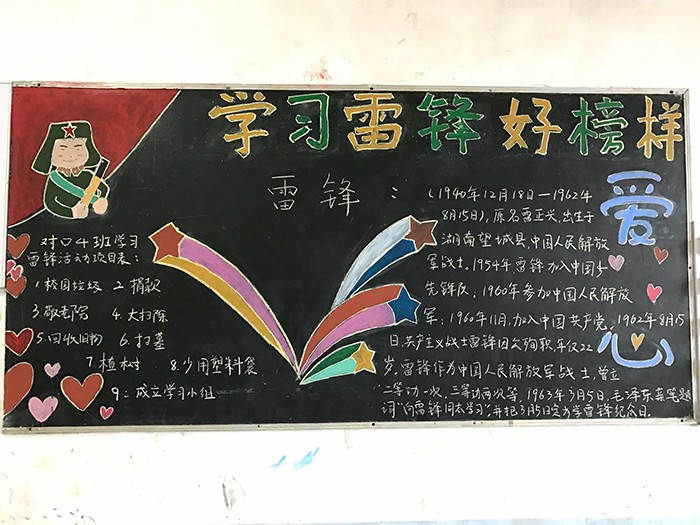 学习雷锋好榜样
爱
心
对口4班学习
雷锋活动项目表：
1校园垃圾 2捐款
3敬老院 4.大扫除
5.回收旧物 6.扫墓
7植树 8.少用塑料袋
9：成立学习小组
雷锋：（1940年12月18日—1962年
8月15日），原名雷正兴，出生于
湖南望城县，中国人民解放
军战士，1954年，雷锋加入中国少
先锋队，1960年参加中国人民解放
军，1960年11月，加入中国共产党，1962年8月15
日，共产主义战士雷锋因公殉职，年仅22
岁，雷锋作为中国人民解放军战士，曾立
二等功一次，三等功两次等，1963年3月5日，毛泽东亲笔题
词“向雷锋同志学习”，并把3月5日定为学雷锋纪念日。